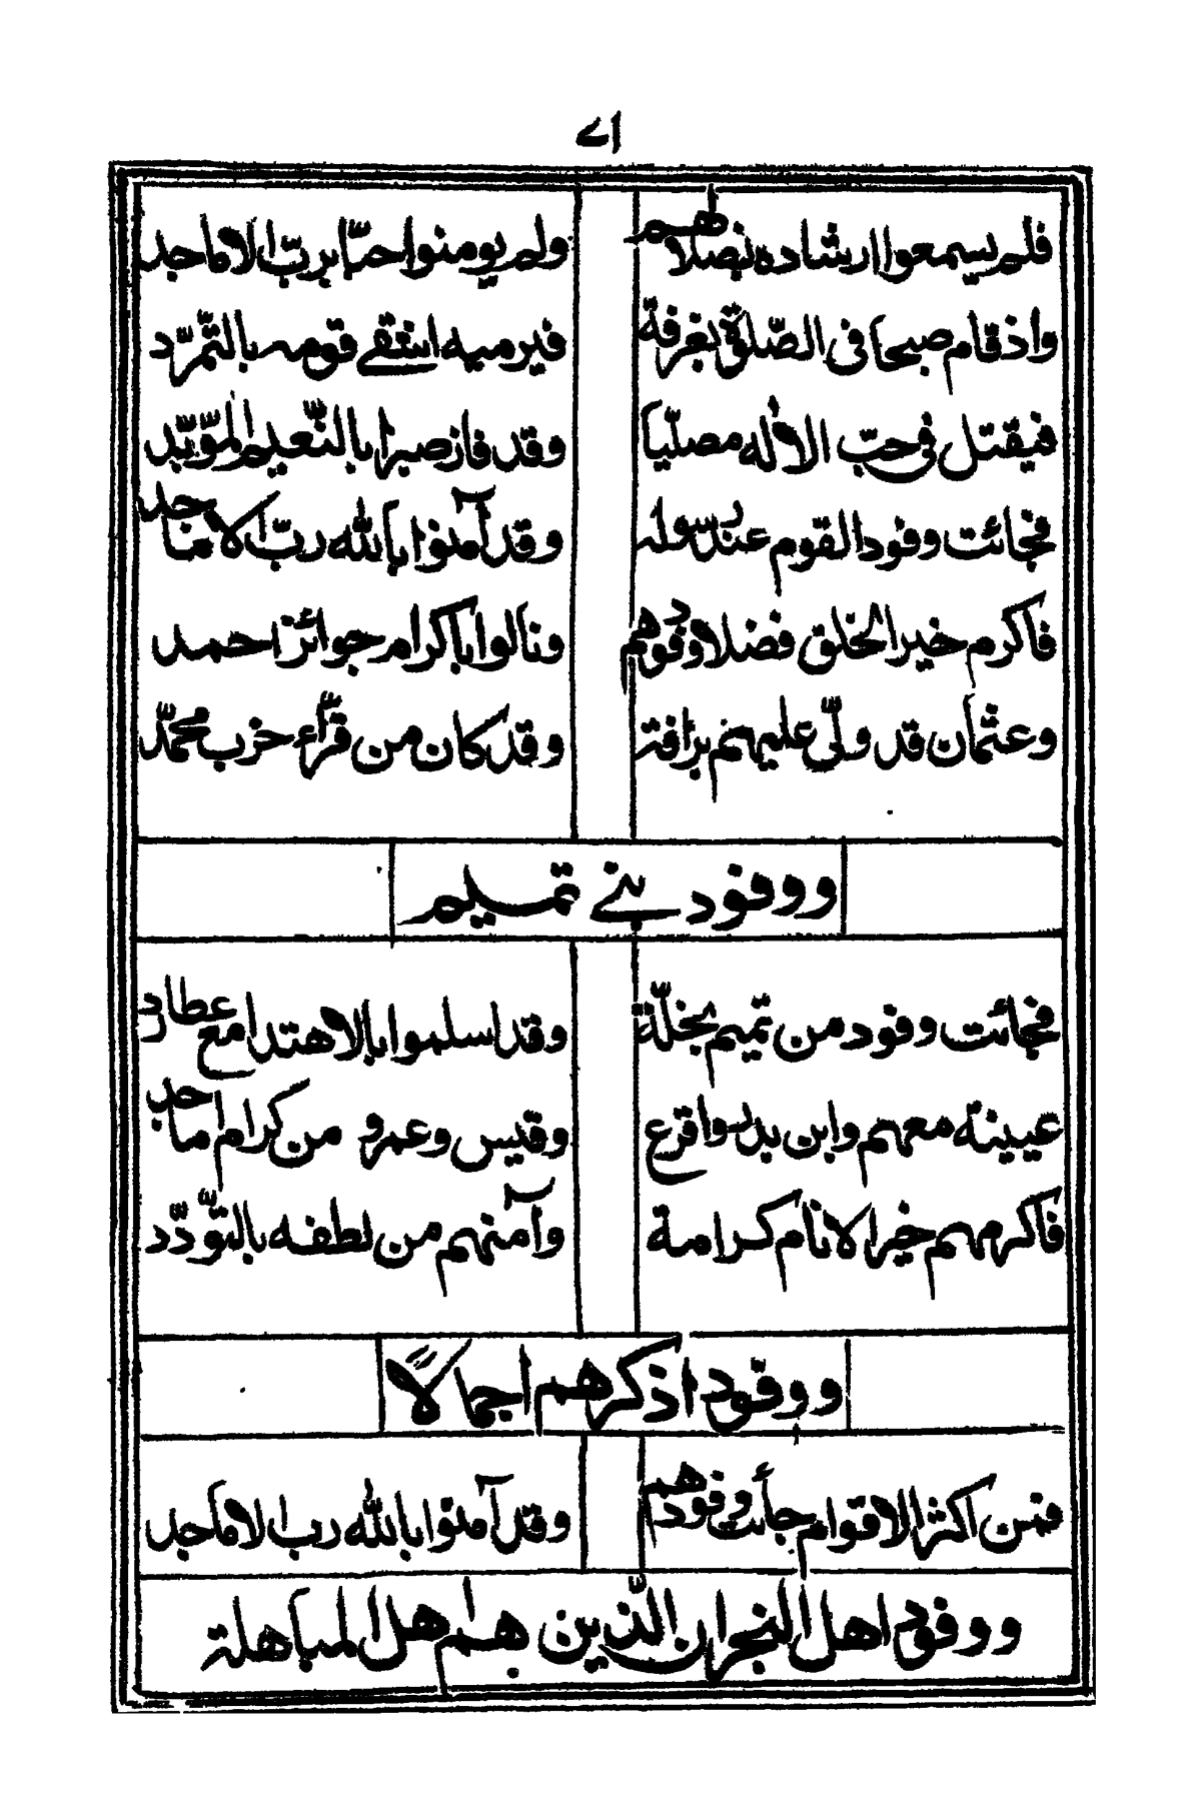 اے
فلم يسمعوا ارشاده بضلالهم ولم يومنوا حبّا بربّ الاماجد
واذ قام صبحا فى الصّلوة بغرفة فيرميه اشقے قومه بالتّمرّد
فيقتل فى حبّ الاله مصلّيا وقد فاز صبرا بالنّعيم المؤيّد
فجائت وفود القوم عند رسوله وقد آمنوا بالله ربّ الاماجد
فاكرم خير الخلق فضلا وفودهم ونالوا باكرام جوائز احمد
وعثمان قد ولّى عليهم برافة وقد كان من قرّاء حزب محمّد
ووفود بنے تميم
فجائت وفود من تميم بخلّة وقد اسلموا بالاهتدا مع عطارد
عيينة معهم وابن بدر واقرع وقيس وعمرو من كرام اماجد
فاكرمهم خير الانام كرامة وآمنهم من لطفه بالتّودّد
ووفود اذكرهم اجمالاً
فمن اكثر الاقوام جأت وفودهم وقد آمنوا بالله رب الاماجد
ووفود اهل النجران الّذين هم اهل المباهلة